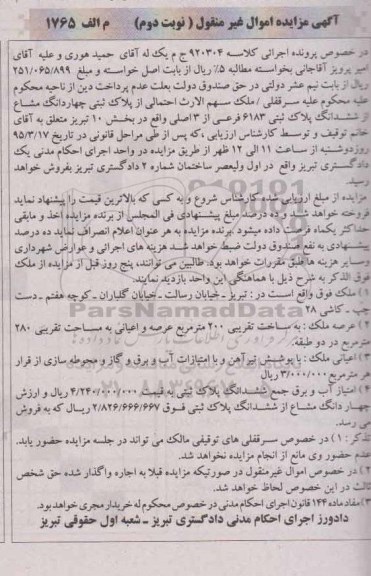 آگهی مزایده اموال غیر منقول ( نوبت دوم ) م الف ۱۷۶۵
در خصوص پرونده اجرائی کلاسه ۹۲۰۳۰۴ ج م یک له آقای حمید هوری و علیه آقای
امیر پرویز آقاجانی بخواسته مطالبه ۵٪ ریال از بابت اصل خواسته و مبلغ ۲۵۱/۰۶۵/۸۹۹
ریال از بابت نیم عشر دولتی در حق صندوق دولت بعلت عدم پرداخت دین از ناحیه محکوم
علیه محکوم علیه سرقفلی / ملک سهم الارث احتمالی از پلاک ثبتی چهاردانگ مشاع
از ششدانگ پلاک ثبتی ۶۱۸۳ فرعی از ۳ اصلی واقع در بخش ۱۰ تبریز متعلق به آقای
خانم توقیف و توسط کارشناس ارزیابی ،که پس از طی مراحل قانونی در تاریخ ۹۵/۳/۱۷
روزدوشنبه از ساعت ۱۱ الی ۱۲ ظهر از طریق مزایده در واحد اجرای احکام مدنی یک
دادگستری تبریز واقع در اول ولیعصر ساختمان شماره ۲ دادگستری تبریز بفروش خواهد
رسید.
مزایده از مبلغ ارزیابی شده کارشناس شروع و به کسی که بالاترین قیمت را پیشنهاد نماید
فروخته خواهد شد و ده درصد مبلغ پیشنهادی فی المجلس از برنده مزایده اخذ و مابقی
حداکثر یکماه فرصت داده میشود .برنده مزایده به هر عنوان اعلام انصراف نماید ده درصد
پیشنهادی به نفع صندوق دولت ضبط خواهد شد هزینه های اجرائی و عوارض شهرداری
وسایر هزینه ها طبق مقررات خواهد بود. طالبین می توانند، پنج روز قبل از مزایده از ملک
فوق الذکر به شرح ذیل با هماهنگی این واحد بازدید نمایند.
۱) ملک فوق واقع است در : تبریز ـ خیابان رسالت ـ خیابان گلباران ـ کوچه هفتم ـ دست
چپ ـ کاشی ۲۸
۲) عرصه ملک : به ساخت تقریبی ۲۰۰ مترمربع عرصه و اعیانی به مساحت تقریبی ۲۸۰
مترمربع در دو طبقه.
۳) اعیانی ملک : با پوشش تیرآهن و با امتیازات آب و برق و گاز و محوطه سازی از قرار
هر مترمربع ۳/۰۰۰/۰۰۰ ریال
۴) امتیاز آب و برق جمع ششدانگ پلاک ثبتی به قیمت ۴/۲۴۰/۰۰۰/۰۰۰ ریال و ارزش
چهار دانگ مشاع از ششدانگ پلاک ثبتی فوق ۲/۸۲۶/۶۶۶/۶۶۷ ریال که به فروش
می رسد.
تذکر : ۱) در خصوص سرقفلی های توقیفی مالک می تواند در جلسه مزایده حضور یابد.
عدم حضور وی مانع از انجام مزایده نخواهد شد.
۲) در خصوص اموال غیرمنقول در صورتیکه مزایده قبلا به اجاره واگذار شده حق شخص
ثالث در این خصوص لحاظ خواهد شد.
۳) مفاد ماده ۱۴۴ قانون اجرای احکام مدنی در خصوص محکوم له خریدار مجری خواهد بود.
دادورز اجرای احکام مدنی دادگستری تبریز ـ شعبه اول حقوقی تبریز
ParsNamadData